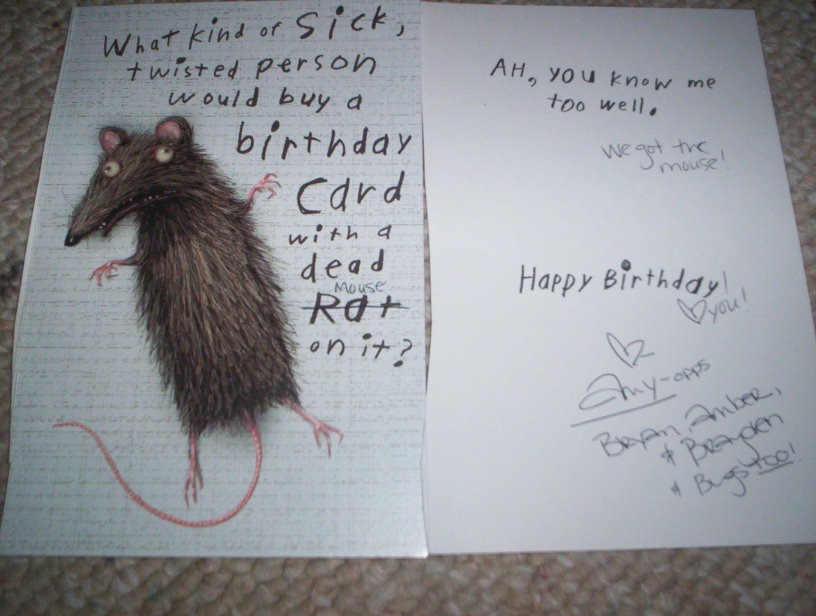 What kind of sick,
twisted person
would buy a
birthday
card
with a
dead
mouse
Rat
on it?
AH, you know me
too well.
We got the
mouse!
Happy Birthday!
♡ you!
♡
Amy-opps
Bryan, Amber,
& Brayden
& Bugs too!